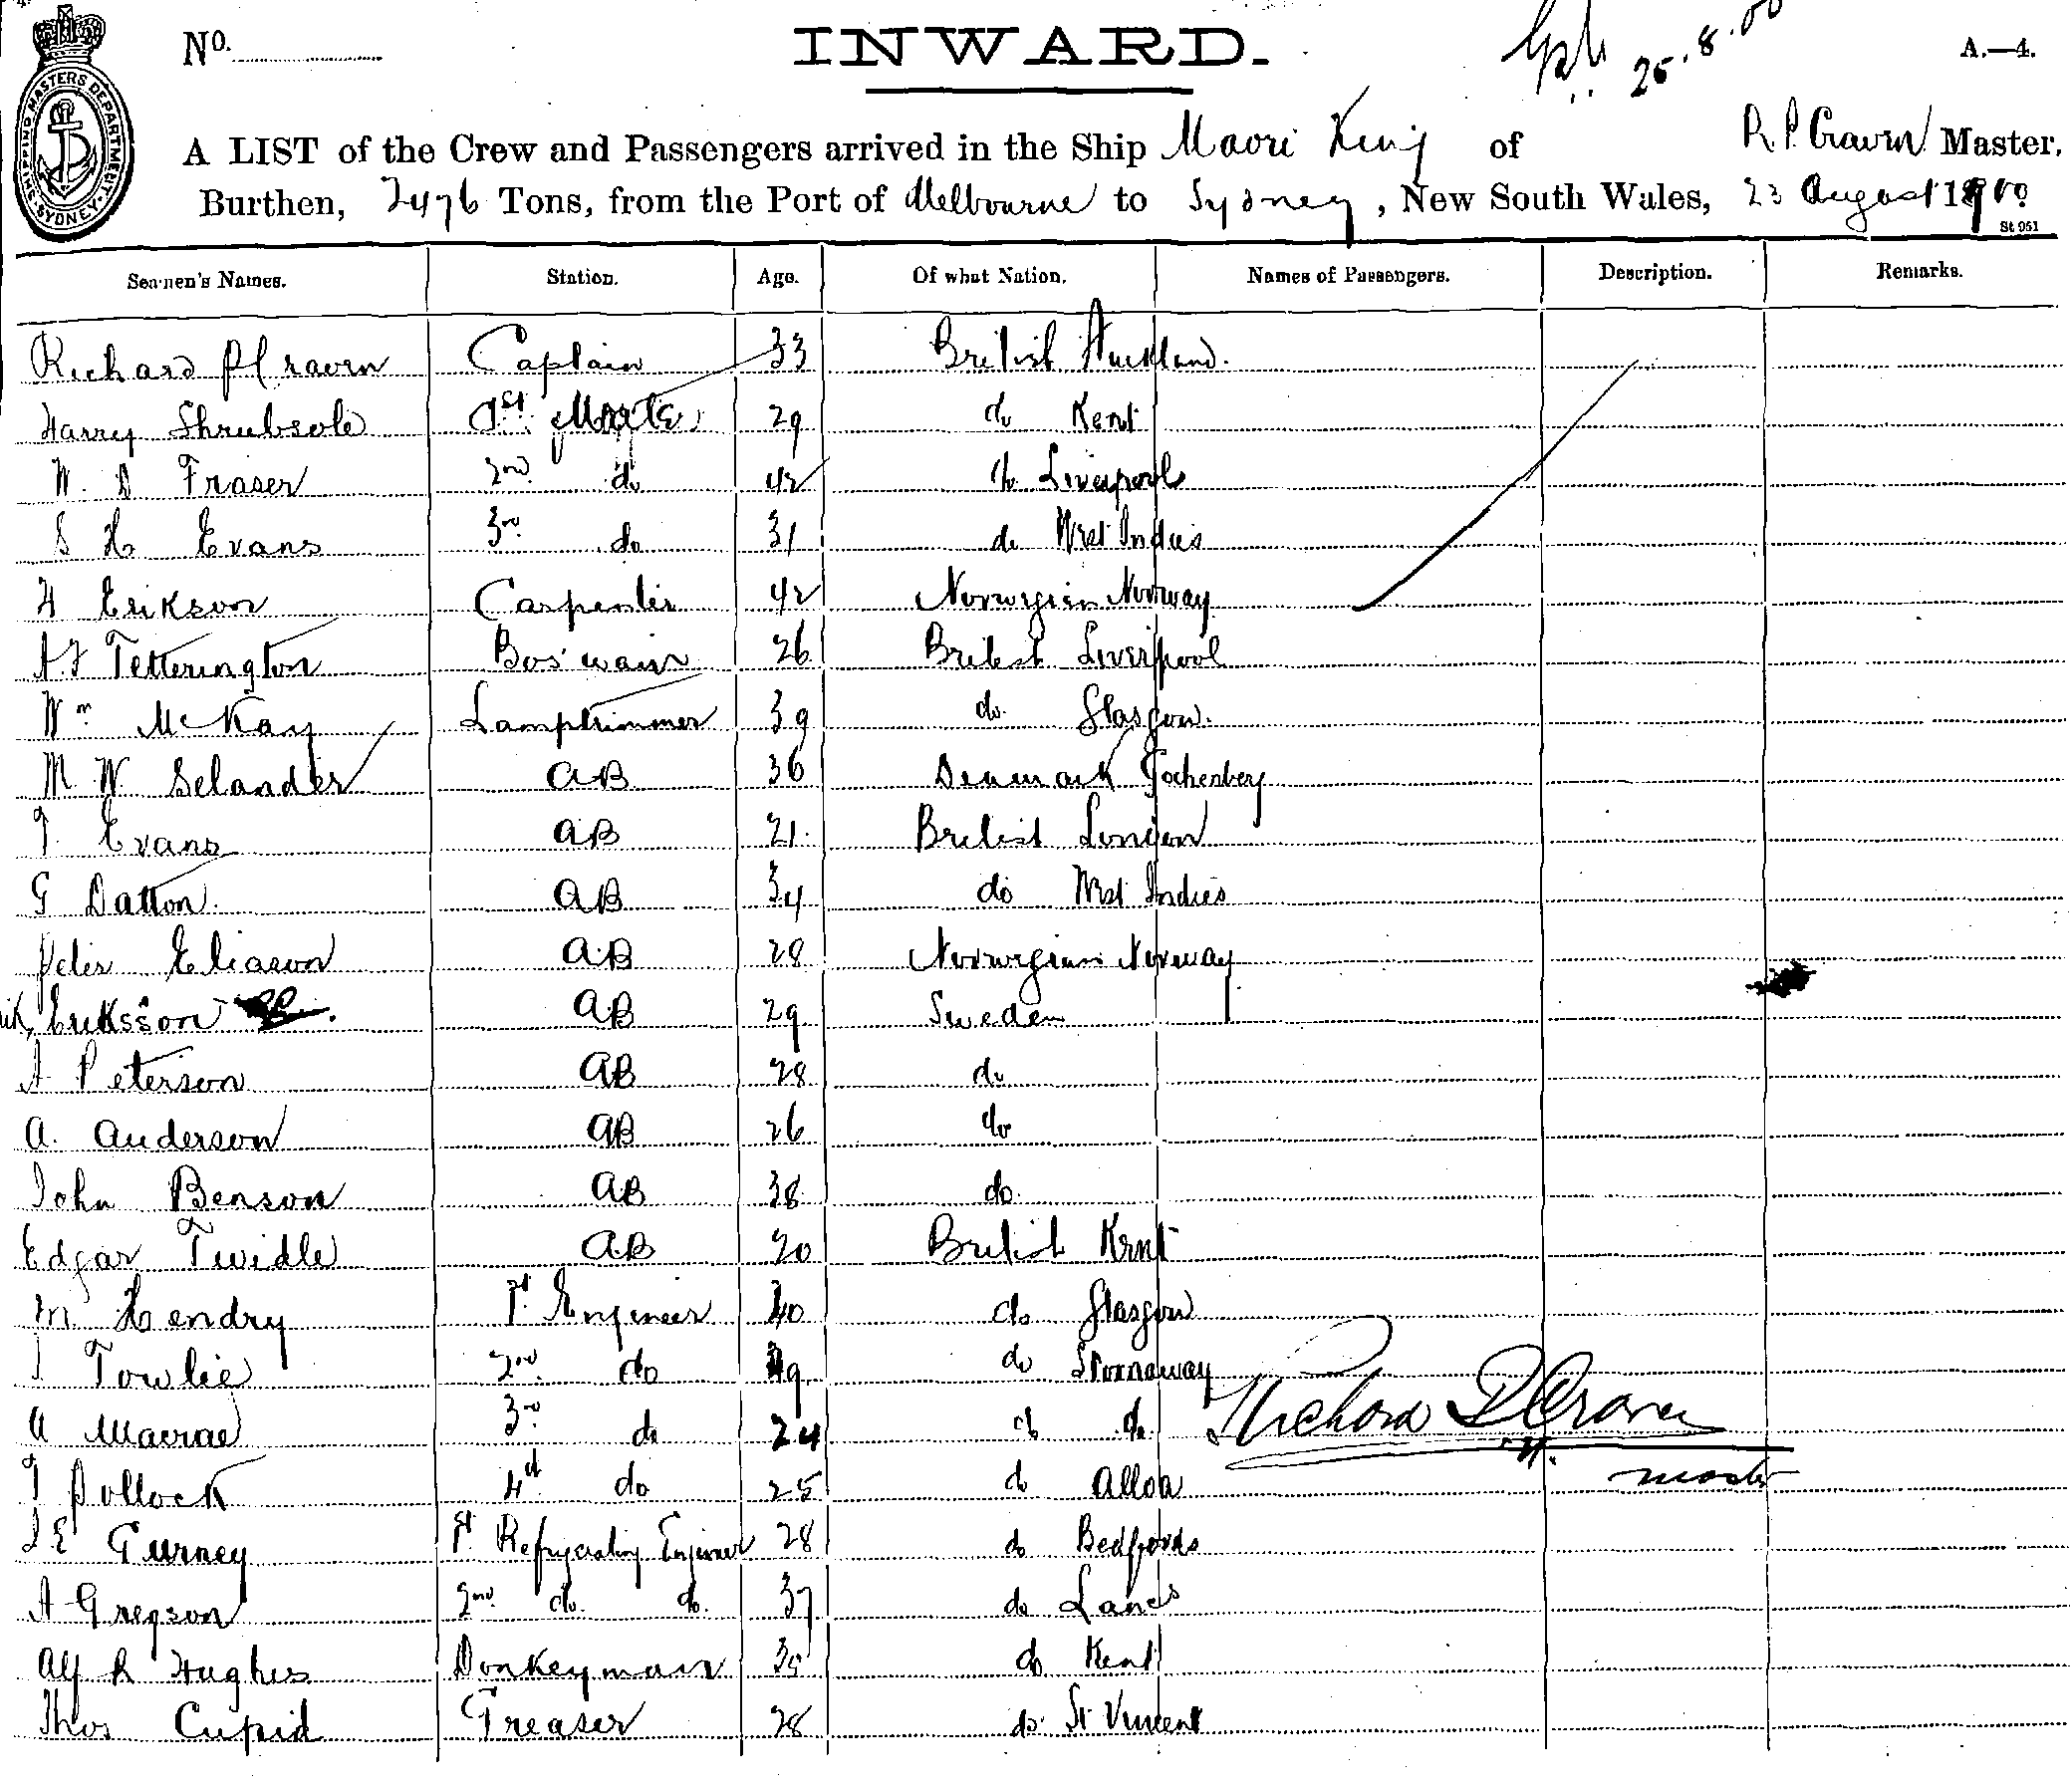 No.
INWARD.
25.8.00
A.—4.
SHIPPING MASTERS DEPARTMENT SYDNEY
A LIST of the Crew and Passengers arrived in the Ship Maori King of R P Craven Master,
Burthen, 2476 Tons, from the Port of Melbourne to Sydney, New South Wales, 23 August 1900
St 951
Seamen's Names. Station. Age. Of what Nation. Names of Passengers. Description. Remarks.
Richard P Craven Captain 33 British Auckland.
Harry Shrubsole 1st Mate 29 do Kent
W. D Fraser 2nd do 42 do Liverpool
S H Evans 3rd do 31 do West Indies
H Erikson Carpenter 42 Norwegian Norway
A F Tetterington Bos'wain 26 British Liverpool
Wm McKay Lamptrimmer 39 do Glasgow.
M W Selander AB 36 Denmark Gothenberg
T Evans AB 21 British London
G Datton AB 34 do West Indies
Peter Eliason AB 28 Norwegian Norway
Eriksson AB 29 Sweden
A Peterson AB 28 do
A. Anderson AB 26 do
John Benson AB 38 do
Edgar Twidle AB 20 British Kent
M Hendry 1st Engineer 40 do Glasgow
J Towlie 2nd do 29 do Stornaway
A Macrae 3rd do 24 do do Richard P Craven
T Pollock 4th do 25 do Alloa master
J E Gurney 1st Refrigerating Engineer 28 do Bedfords
A Gregson 2nd do do. 37 do Lancs
Alf R Hughes Donkeyman 35 do Kent
Thos Cupid Greaser 28 do St Vincent